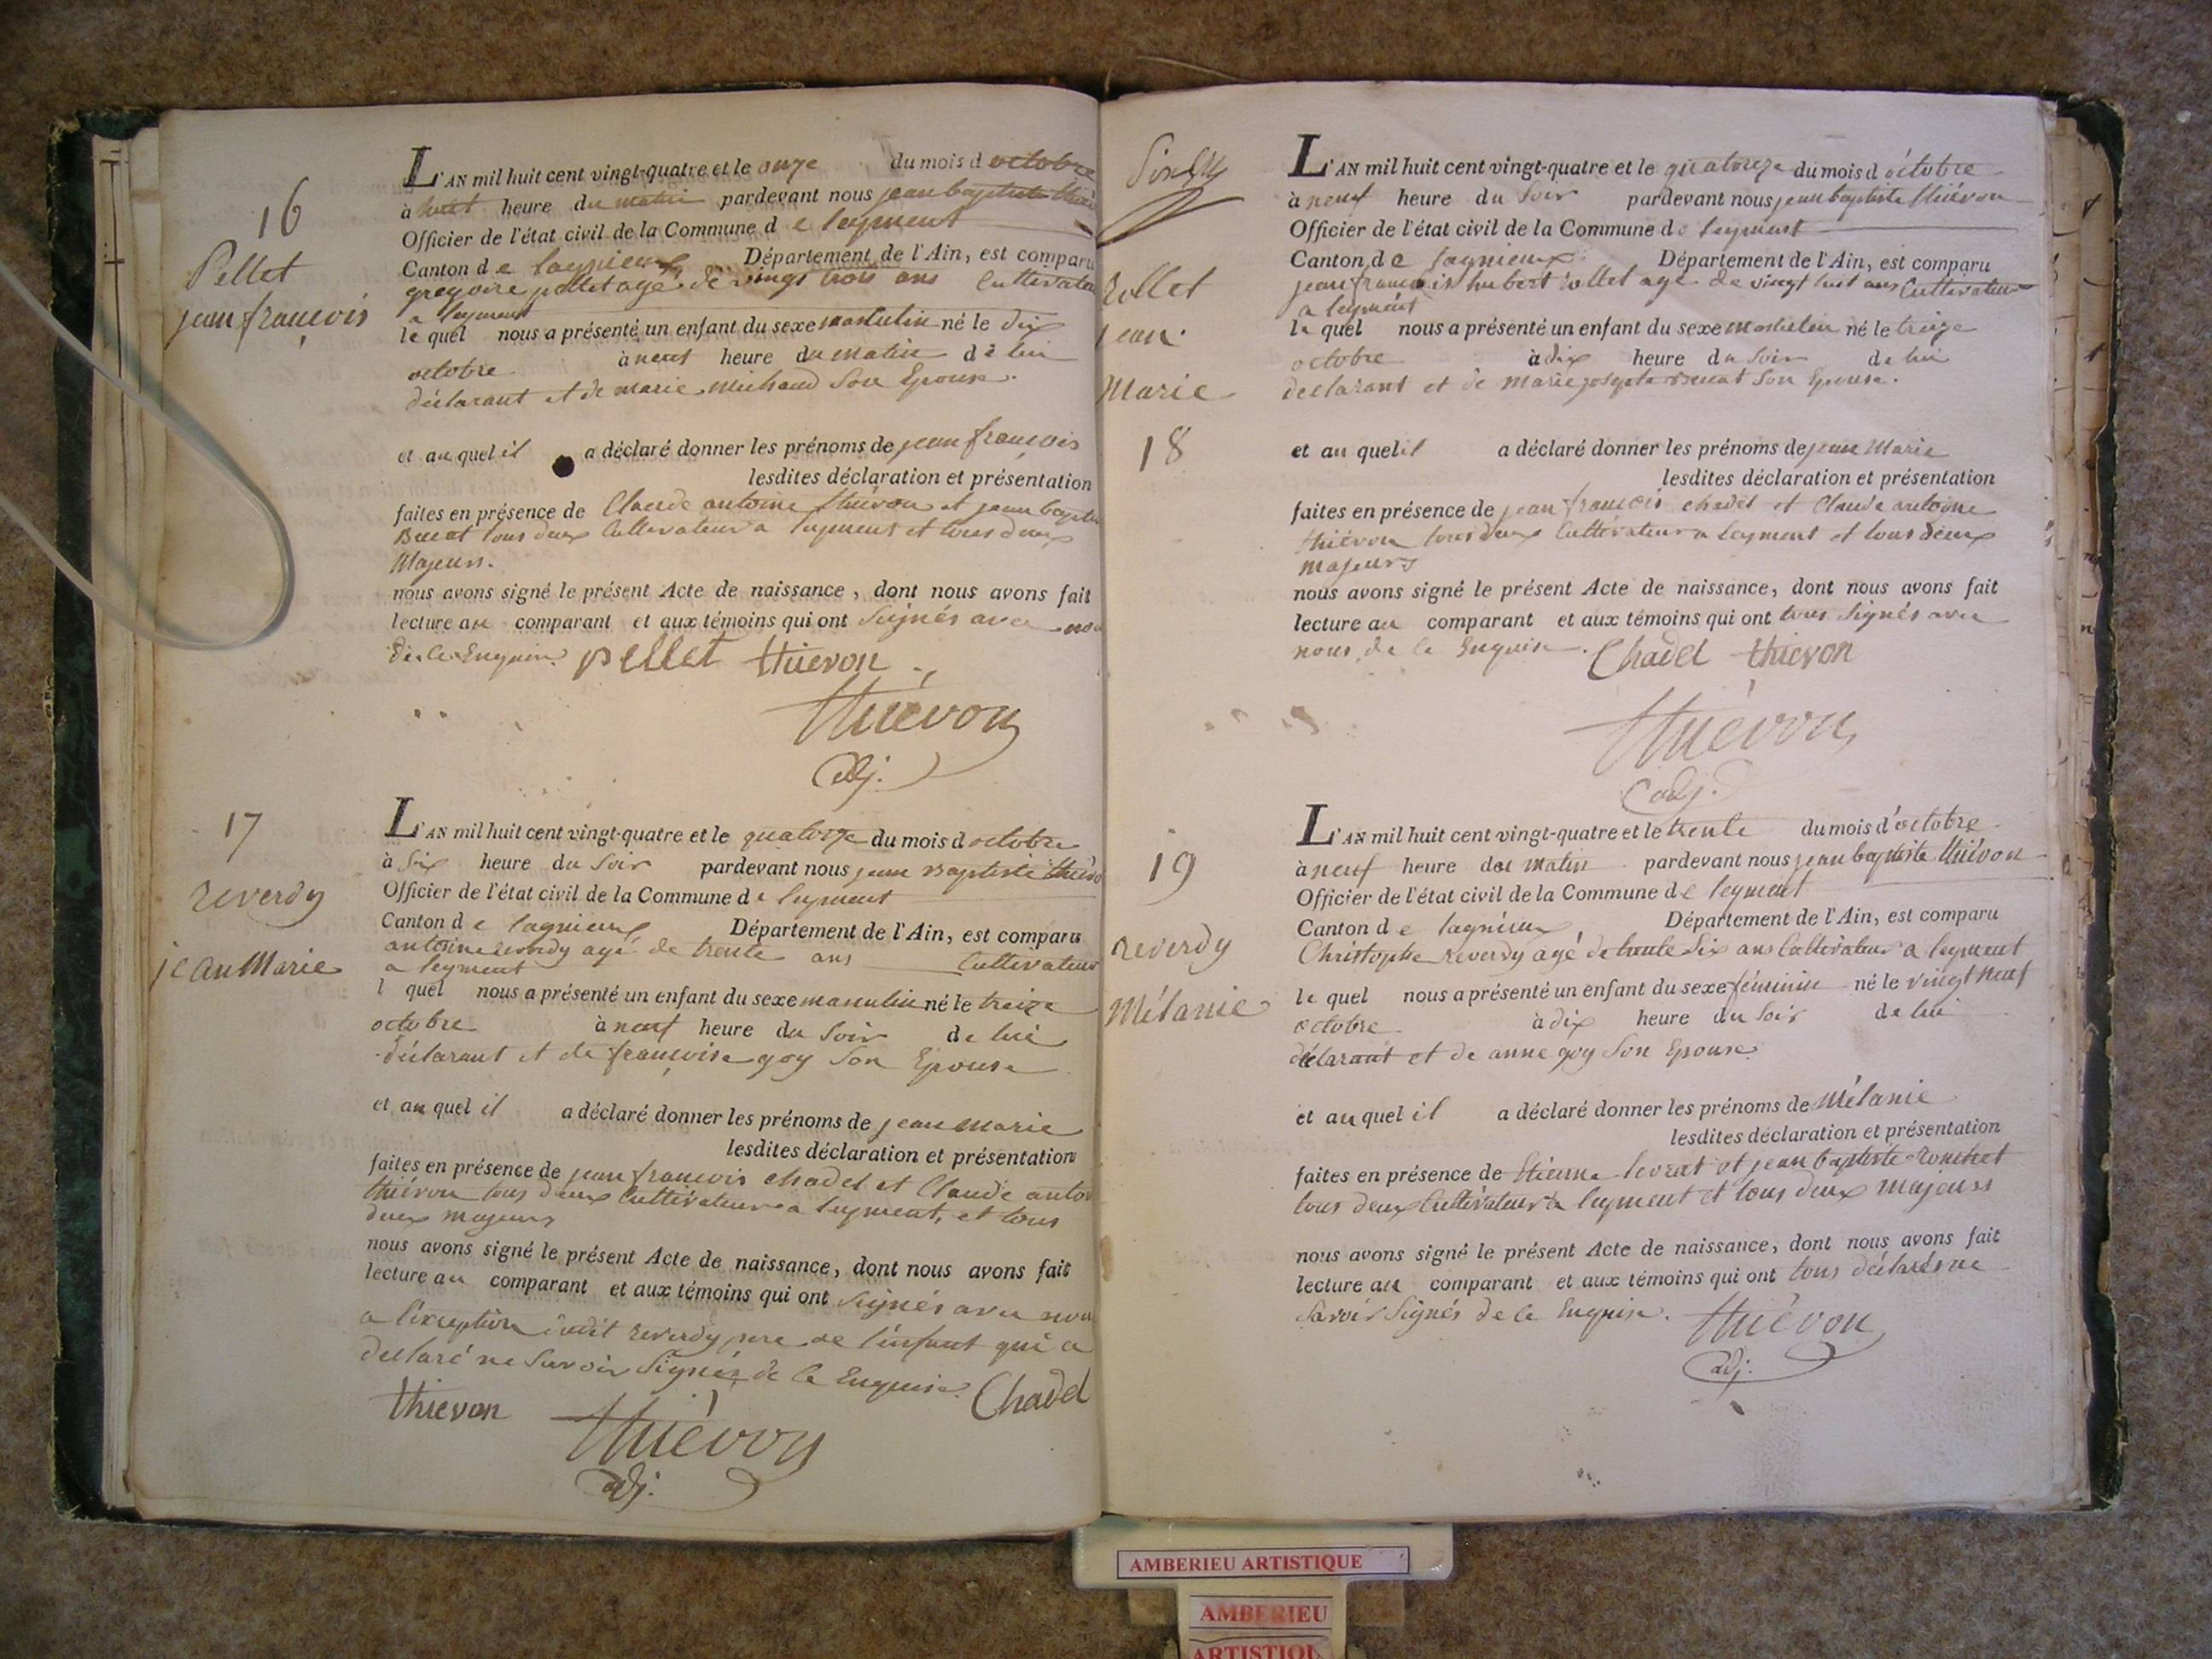 16
Pellet
jean françois
L'AN mil huit cent vingt-quatre et le onze du mois d octobre
à huit heure du matin pardevant nous jean baptiste thiévon
Officier de l'état civil de la Commune d e leyment
Canton d e lagnieux Département de l'Ain, est comparu
gregoire pellet agé de vingt trois ans Cultivateur
a leyment
le quel nous a présenté un enfant du sexe masculin né le dix
octobre à neuf heure du matin de lui
déclarant et de marie michaud Son Epouse.
et au quel il a déclaré donner les prénoms de jean françois
lesdites déclaration et présentation
faites en présence de Claude antoine thiévon et jean baptiste
tous deux Cultivateur a leyment et tous deux
Majeurs.
nous avons signé le présent Acte de naissance, dont nous avons fait
lecture au comparant et aux témoins qui ont Signés avec nous
de ce Enquis. pellet thievon
thiévon
adj.
17
reverdy
jean Marie
L'AN mil huit cent vingt-quatre et le quatorze du mois d octobre
à Six heure du Soir pardevant nous jean Baptiste thiévon
Officier de l'état civil de la Commune d e leyment
Canton d e lagnieux Département de l'Ain, est comparu
antoine reverdy agé de trente ans Cultivateur
a leyment
l quel nous a présenté un enfant du sexe masculin né le treize
octobre à neuf heure du Soir de lui
déclarant et de françoise goy Son Epouse
et au quel il a déclaré donner les prénoms de jean Marie
lesdites déclaration et présentation
faites en présence de jean françois chadel et Claude antoi
thiévon tous deux Cultivateur a leyment, et tous
deux majeurs
nous avons signé le présent Acte de naissance, dont nous avons fait
lecture au comparant et aux témoins qui ont Signés avec nous
a l'exception dudit reverdy pere de l'enfant qui a
declaré ne Savoir Signés de ce Enquis. Chadel
thievon thiévon
adj.
rollet
jean
Marie
18
L'AN mil huit cent vingt-quatre et le quatorze du mois d octobre
à neuf heure du Soir pardevant nous jean baptiste thiévon
Officier de l'état civil de la Commune d e leyment
Canton d e lagnieux Département de l'Ain, est comparu
jean françois hubert rollet agé de vingt huit ans Cultivateur
a leyment
le quel nous a présenté un enfant du sexe masculin né le treize
octobre à dix heure du Soir de lui
declarant et de marie Son Epouse.
et au quel il a déclaré donner les prénoms de jean Marie
lesdites déclaration et présentation
faites en présence de jean françois chadel et Claude antoine
thiévon tous deux Cultivateur a leyment et tous deux
majeurs
nous avons signé le présent Acte de naissance, dont nous avons fait
lecture au comparant et aux témoins qui ont tous Signés avec
nous de ce Enquis. Chadel thievon
thiévon
adj.
19
reverdy
Mélanie
L'AN mil huit cent vingt-quatre et le trente du mois d'octobre
à neuf heure du matin pardevant nous jean baptiste thiévon
Officier de l'état civil de la Commune d e leyment
Canton d e lagnieux, Département de l'Ain, est comparu
Christophe reverdy agé de trente Six ans Cultivateur a leyment
le quel nous a présenté un enfant du sexe féminin né le vingt neuf
octobre à dix heure du Soir de lui
déclarant et de anne goy Son Epouse
et au quel il a déclaré donner les prénoms de Mélanie
lesdites déclaration et présentation
faites en présence de Etienne levrat et jean baptiste ronchet
tous deux Cultivateur a leyment et tous deux majeurs
nous avons signé le présent Acte de naissance, dont nous avons fait
lecture au comparant et aux témoins qui ont tous déclarés ne
Savoir Signés de ce Enquis. thiévon
adj.
AMBERIEU ARTISTIQUE
AMBERIEU
ARTISTIQU